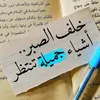 خلف الصبر..
أشياء جميلة تنتظر